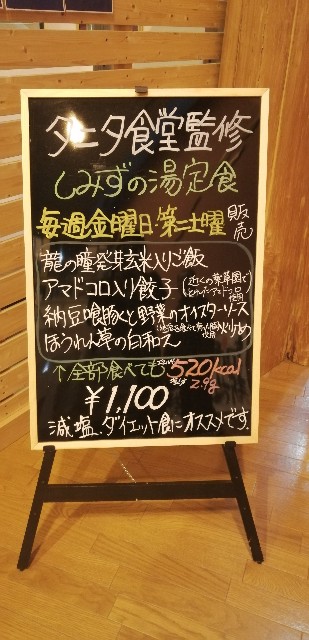 タニタ食堂監修
しみずの湯定食
毎週金曜日・第二土曜 販売
龍の瞳発芽玄米入りご飯
アマドコロ入り餃子(近くの薬草園でとれたアマドコロ使用
納豆喰豚と野菜のオイスターソース炒め
ほうれん草の白和え
↑全部食べても 520kcal
2.9g
¥1,100
減塩、ダイエット食にオススメです。